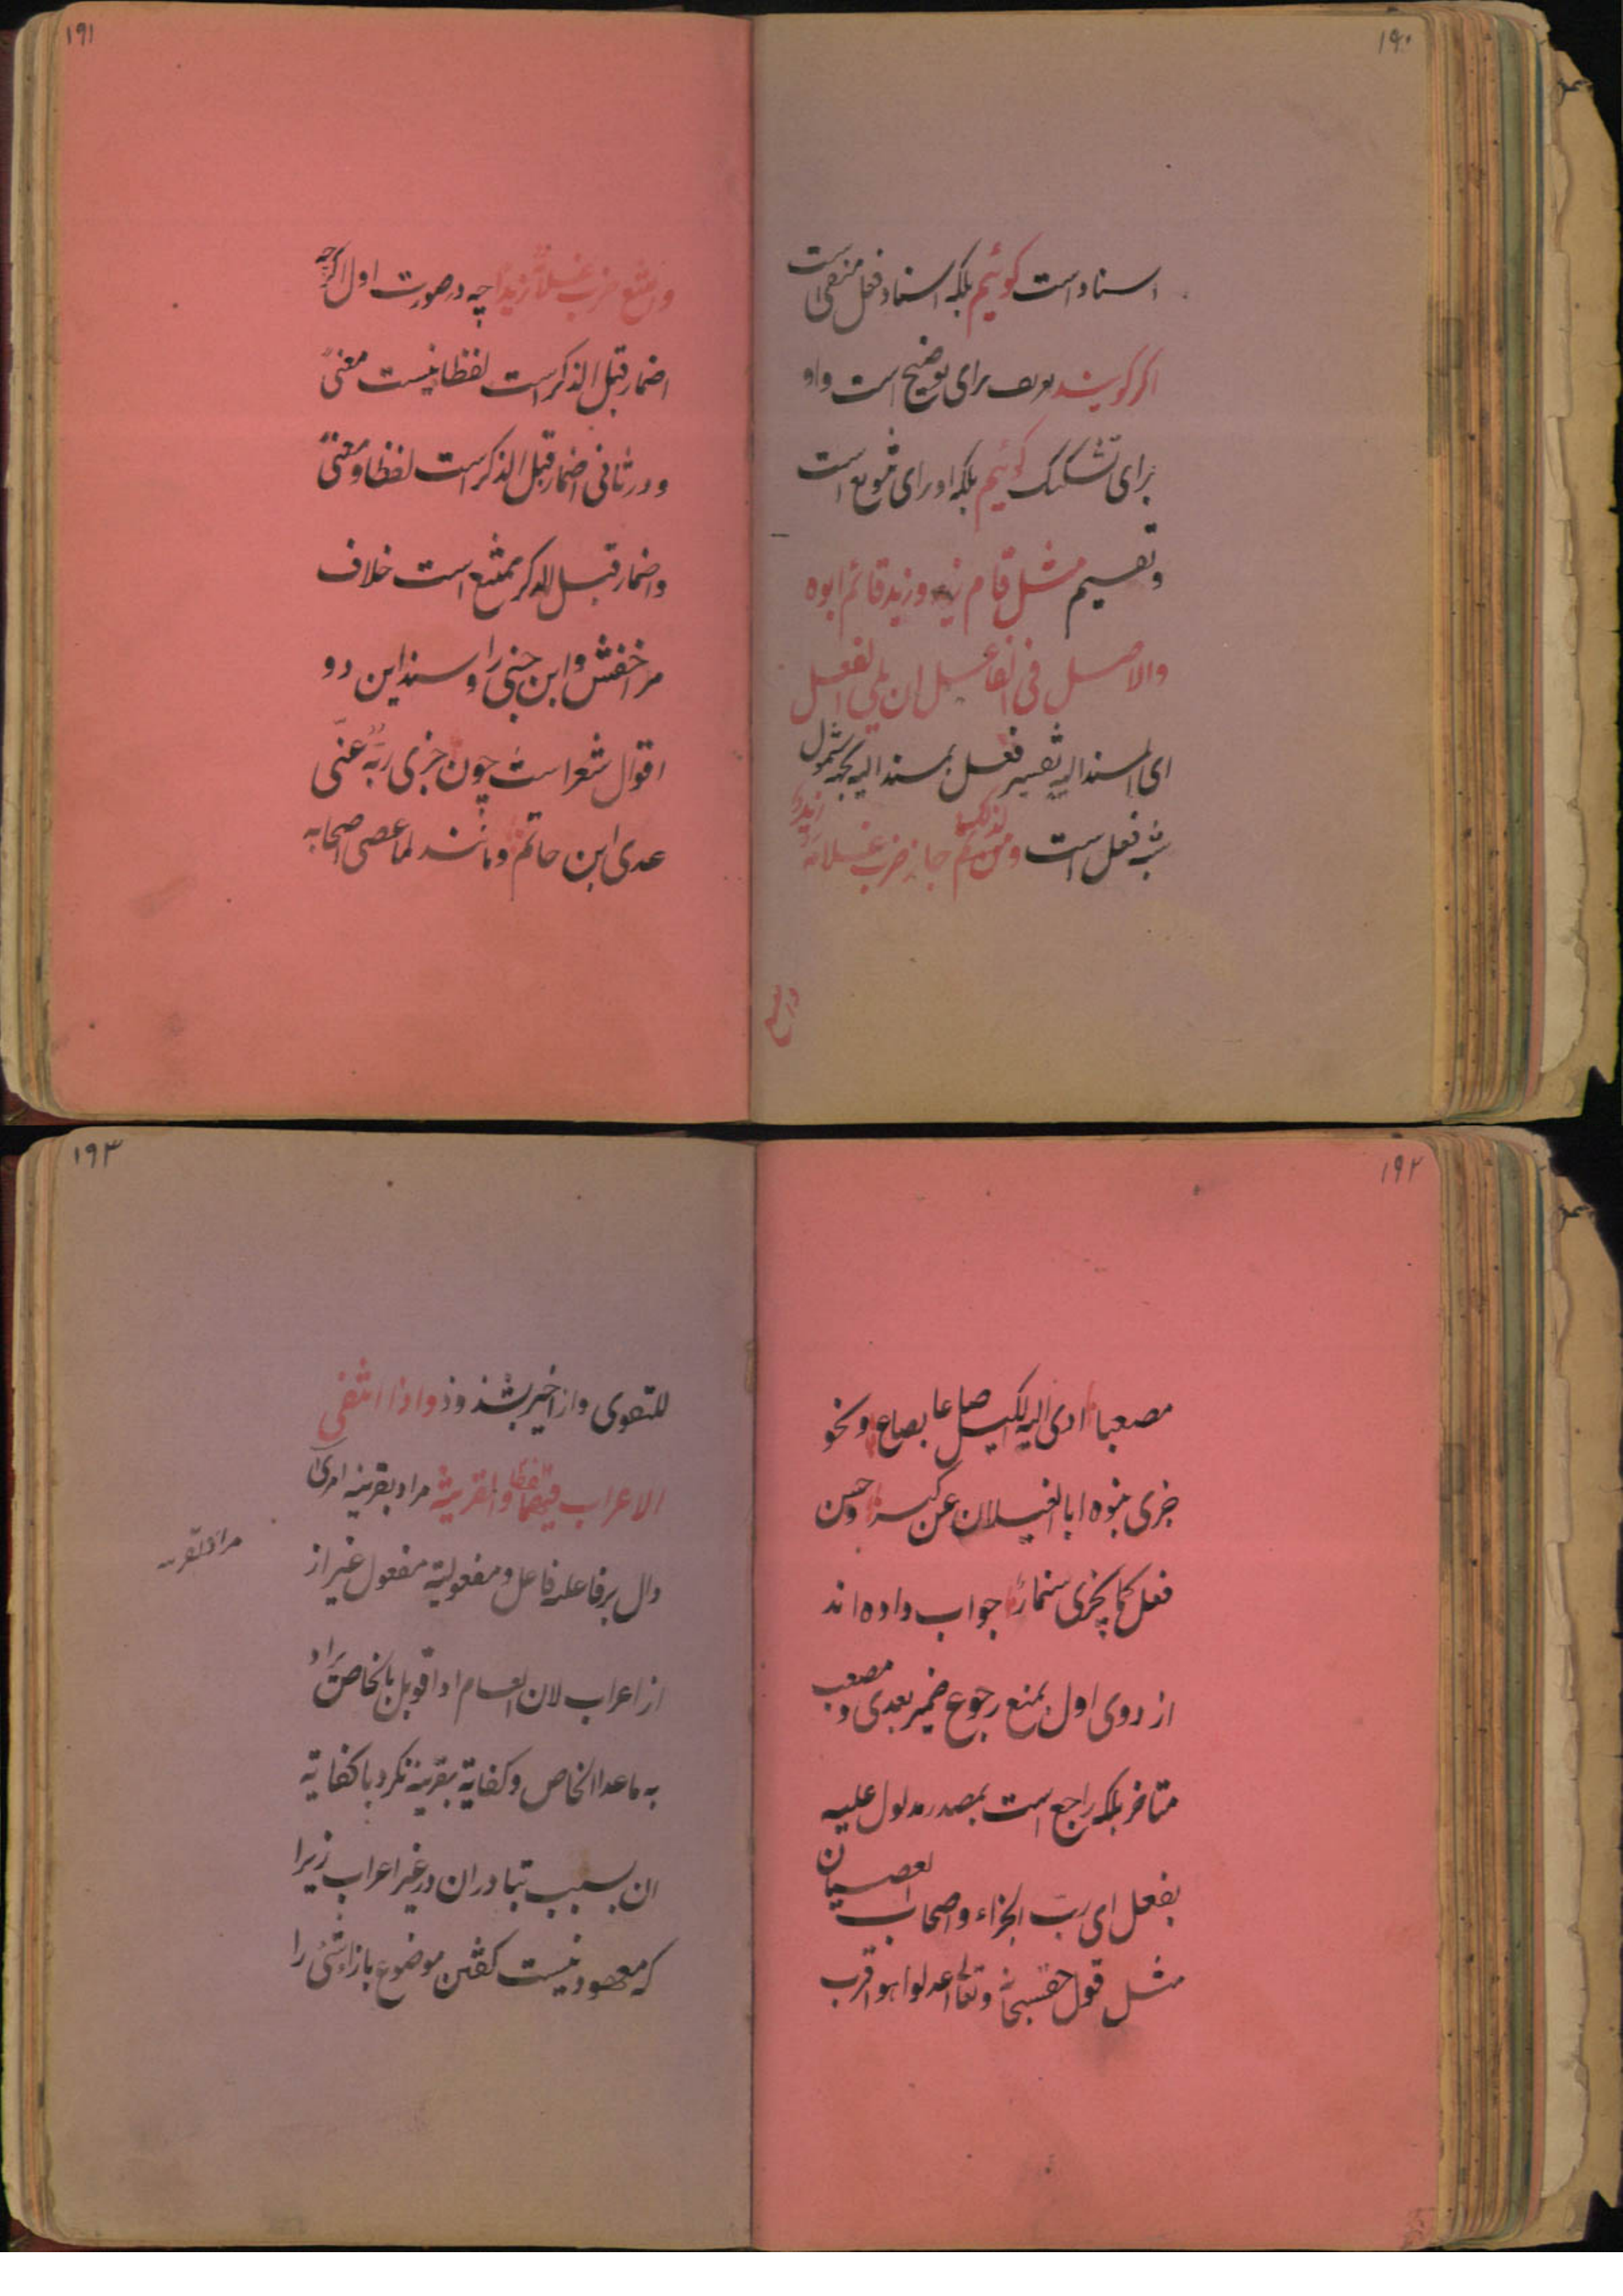 ۱۹۰
اسناد است کوئیم بلکه اسناد فعل منفی است
اکر کویند تعریف برای توضیح است واو
برای تشکیک کوئیم بلکه او برای تنویع است
وتقسیم مثل قام زید وزید قائم ابوه
والاصل فی الفاعل ان یلی الفعل
ای المسند الیه تفسیر فعل بمسند الیه بجهة شمول
شبه فعل است ومن ثم جاز ضرب غلامه زید
وامتنع
۱۹۱
وامتنع ضرب غلامه زیدا چه در صورت اول اکرچه
اضمار قبل الذکر است لفظا نیست معنی
ودر ثانی اضمار قبل الذکر است لفظا ومعنی
واضمار قبل الذکر ممتنع است خلاف
مر اخفش وابن جنی را وسند این دو
اقوال شعرا است چون جزی ربه عنی
عدی ابن حاتم ومانند لما عصی اصحابه
۱۹۲
مصعبا ادی الیه الکیل صاعا بصاع ونحو
جزی بنوه ابا الغیلان عن کبر وحسن
فعل کما یجزی سنمار جواب داده اند
از روی اول بمنع رجوع ضمیر بعدی و مصعب
متاخر بلکه راجع است بمصدر مدلول علیه
بفعل ای رب الجزاء واصحاب العصیان
مثل قول حق سبحانه وتعالی اعدلوا هو اقرب
۱۹۳
للتقوی واز اخیر بشذوذ واذا انتفی
الاعراب لفظا فیهما والقرینة مراد بقرینه امری
دال بر فاعلیه فاعل ومفعولیة مفعول غیر از
از اعراب لان العام اذا قوبل بالخاص یراد
به ماعدا الخاص وکفایة بقرینه نکرد با کفایة
ان بسبب تبادر ان در غیر اعراب زیرا
که معهود نیست کفتن موضوع بازاء شئ را